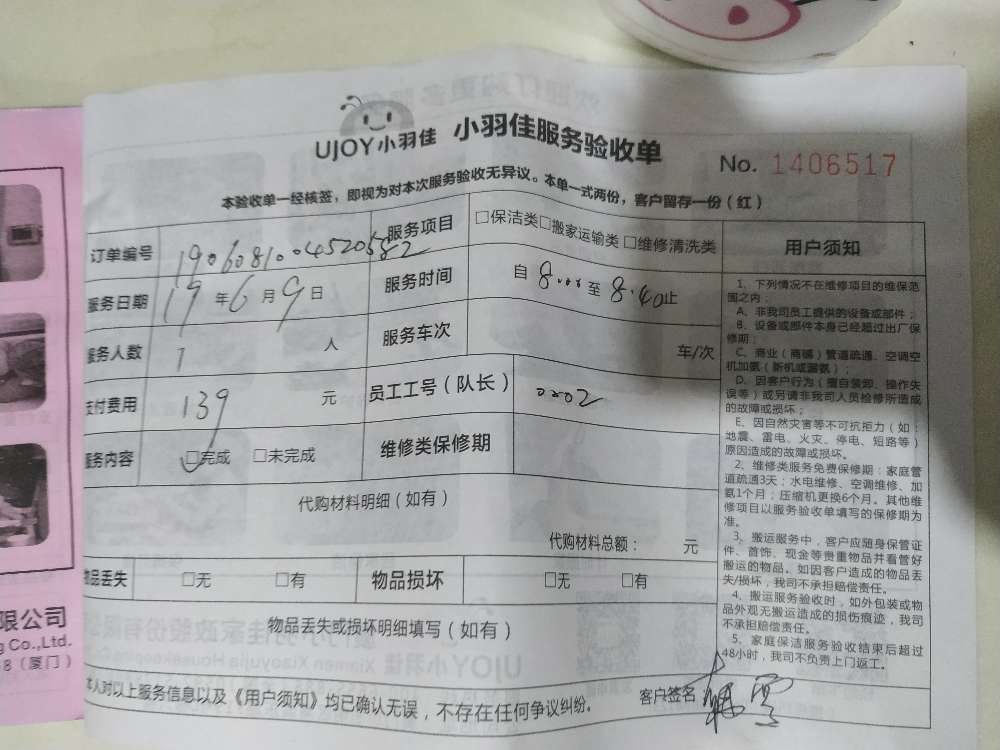 UJOY小羽佳 小羽佳服务验收单
No. 1406517
本验收单一经核签，即视为对本次服务验收无异议。本单一式两份，客户留存一份（红）
订单编号 服务项目 □保洁类□搬家运输类 □维修清洗类
服务日期 19 年 6 月 9 日 服务时间 自 8:00 至 8:40止
服务人数 1 人 服务车次 车/次
支付费用 139 元 员工工号（队长） 0202
服务内容 □完成 □未完成 维修类保修期
代购材料明细（如有）
代购材料总额： 元
物品丢失 □无 □有 物品损坏 □无 □有
物品丢失或损坏明细填写（如有）
本人对以上服务信息以及《用户须知》均已确认无误，不存在任何争议纠纷。 客户签名
用户须知
1、下列情况不在维修项目的维保范
围之内：
A、非我司员工提供的设备或部件；
B、设备或部件本身已经超过出厂保
修期；
C、商业（商铺）管道疏通、空调空
机加氨（新机或漏氨）；
D、因客户行为（擅自装卸、操作失
误等）或另请非我司人员检修所造成
的故障或损坏；
E、因自然灾害等不可抗拒力（如：
地震、雷电、火灾、停电、短路等）
原因造成的故障或损坏。
2、维修类服务免费保修期：家庭管
道疏通3天；水电维修、空调维修、加
氨1个月；压缩机更换6个月。其他维
修项目以服务验收单填写的保修期为
准。
3、搬运服务中，客户应随身保管证
件、首饰、现金等贵重物品并看管好
搬运的物品。如因客户造成的物品丢
失/损坏，我司不承担赔偿责任。
4、搬运服务验收时，如外包装或物
品外观无搬运造成的损伤痕迹，我司
不承担赔偿责任。
5、家庭保洁服务验收结束后超过
48小时，我司不负责上门返工。
限公司
g Co.,Ltd.
8（厦门）